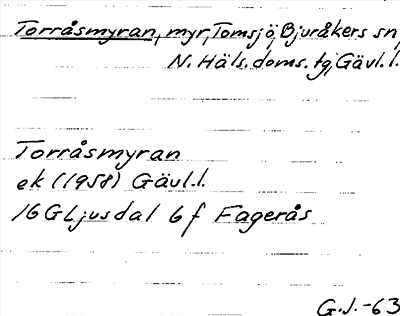 Torråsmyran, myr, Tomsjö, Bjuråkers sn,
N. Häls. doms. tg, Gävl. l.
Torråsmyran
ek (1958) Gävl. l.
16G Ljusdal 6 f Fagerås
G.J. -63